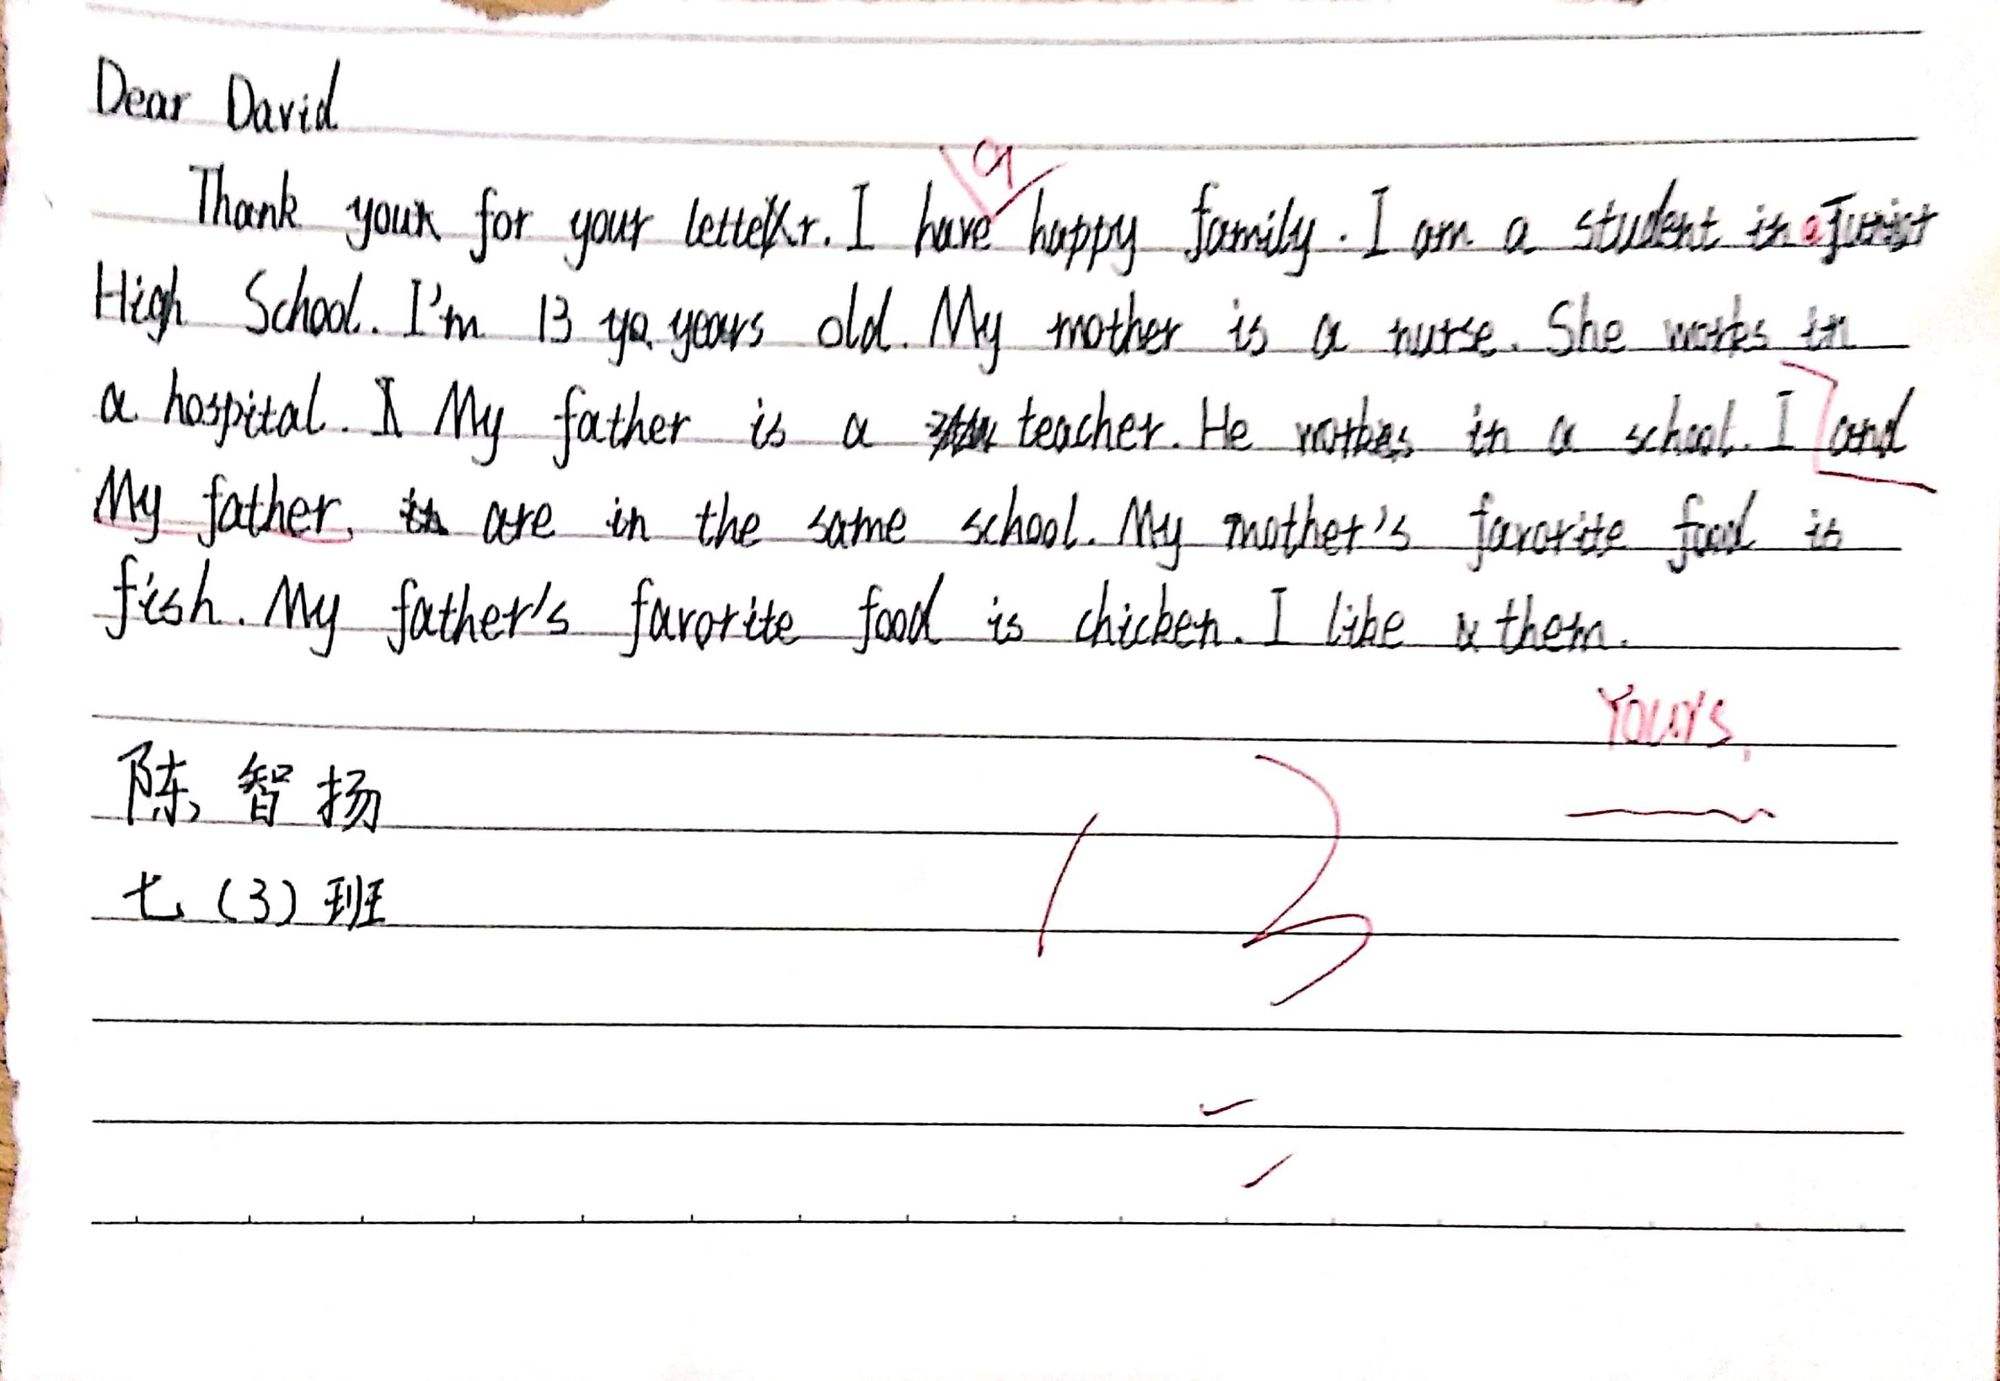 Dear David
a
Thank you for your letter. I have happy family. I am a student in a
High School. I'm 13 years old. My mother is a nurse. She works in
a hospital. My father is a teacher. He works in a school. I and
My father, are in the same school. My mother's favorite food is
fish. My father's favorite food is chicken. I like them.
Yours,
陈智扬
七(3)班
13